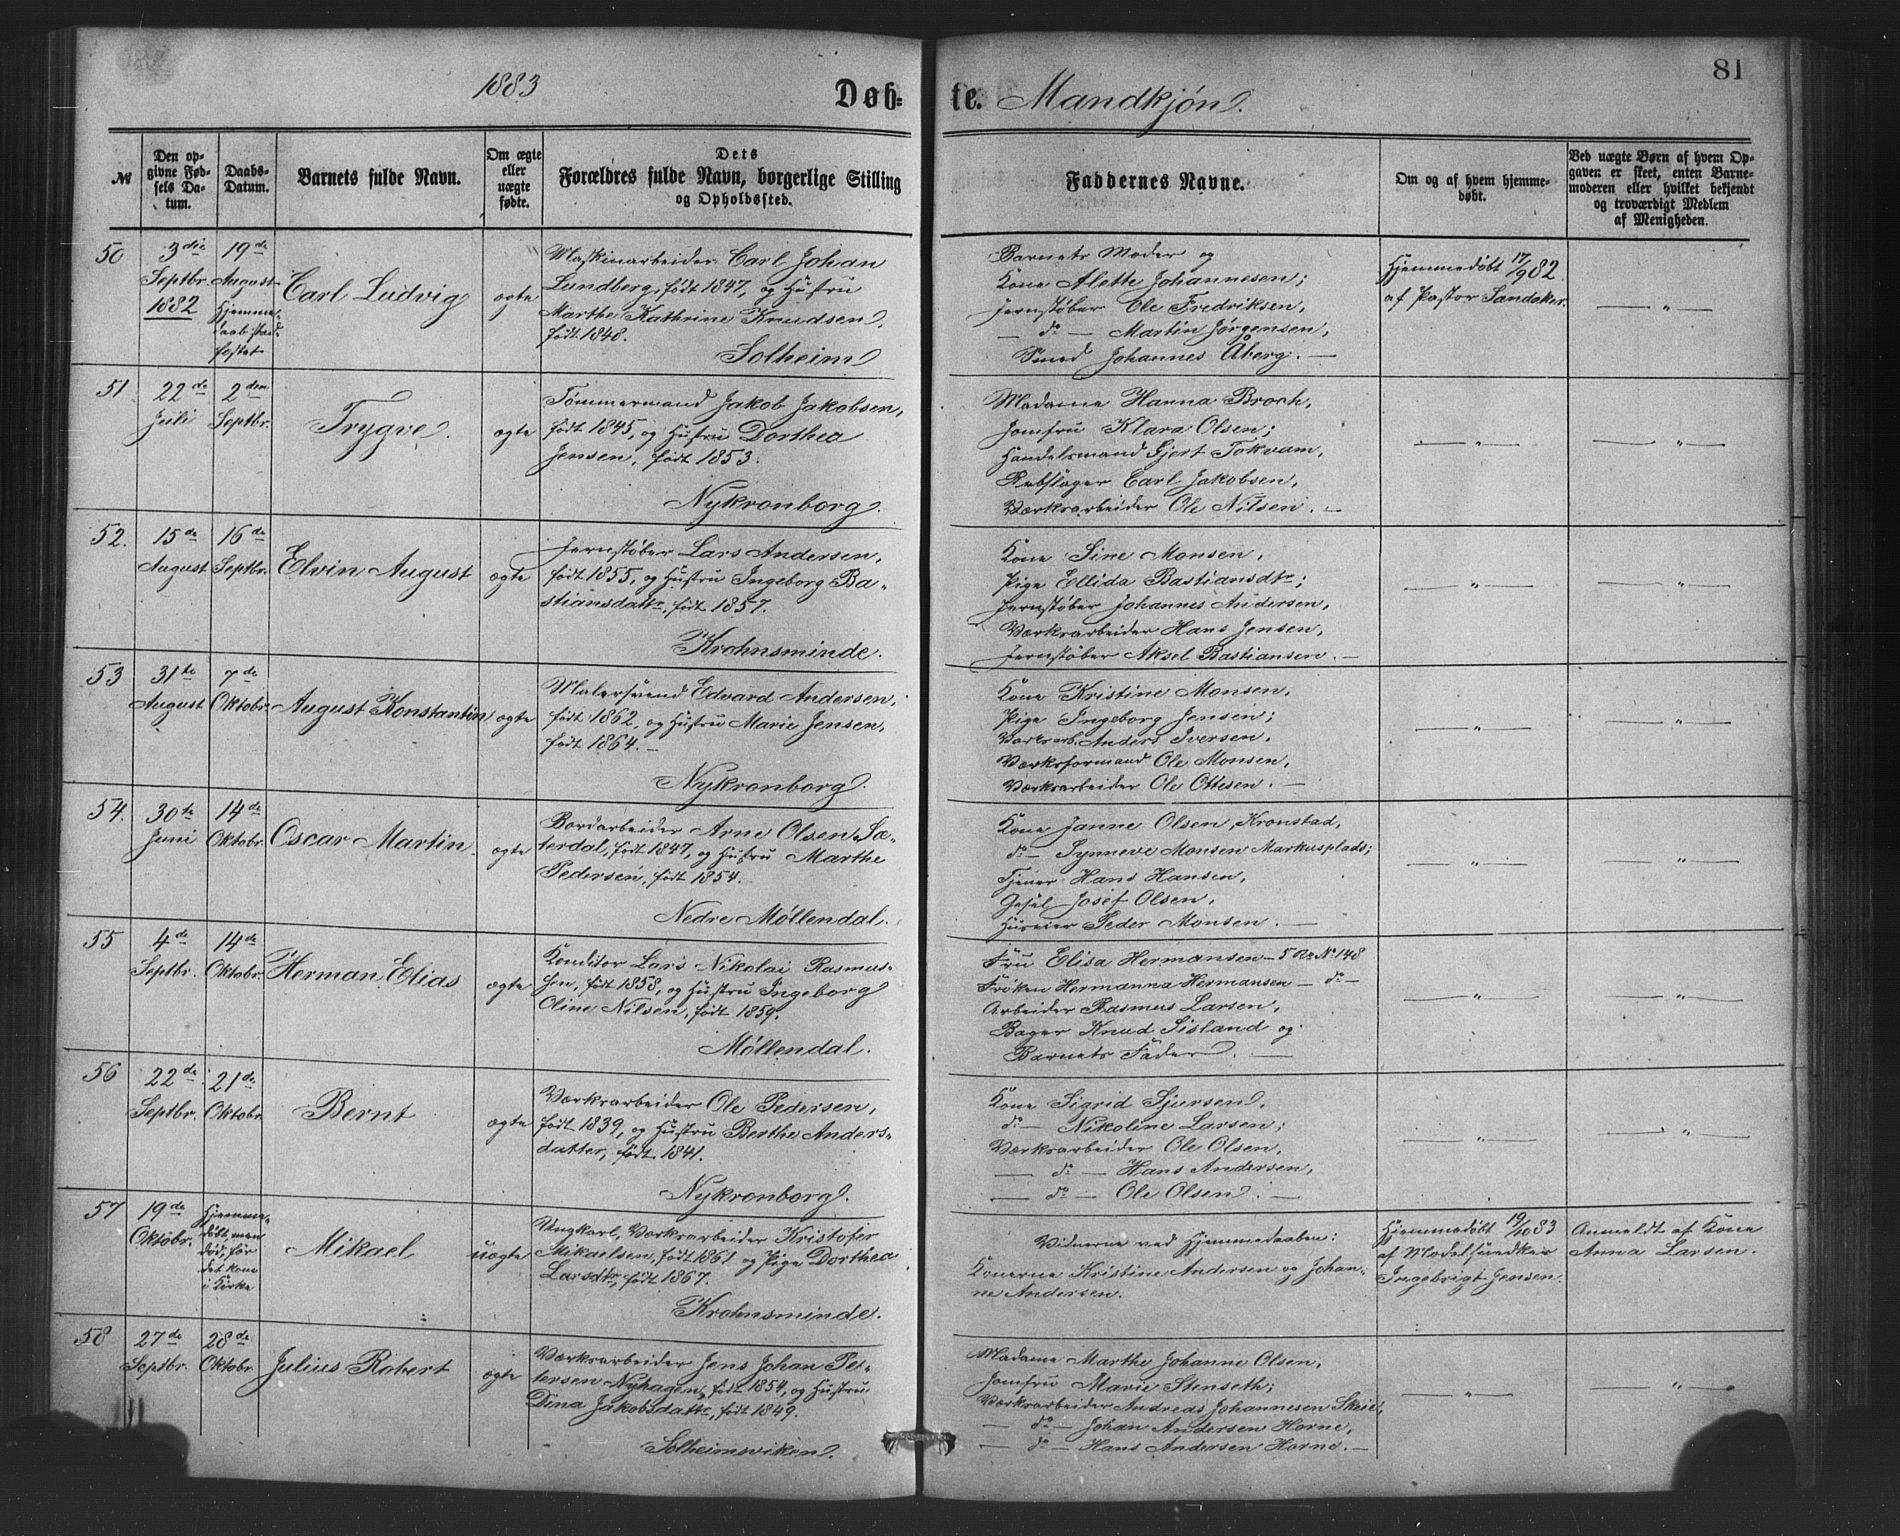 81
1883
Døb-
te. Mandkjøn.
№
Den op-
givne Fød-
sels Da-
tum.
Daabs-
Datum.
Barnets fulde Navn.
Om ægte
eller
uægte
fødte.
Dets
Forældres fulde Navn, borgerlige Stilling
og Opholdssted.
Faddernes Navne.
Om og af hvem hjemme-
døbt.
Ved uægte Børn af hvem Op-
gaven er skeet, enten Barne-
moderen eller hvilket bekjendt
og troværdigt Medlem
af Menigheden.
50
3die
Septbr.
1882
19de
August
Hjemme-
daab stad-
fæstet
Carl Ludvig
ægte
Maskinarbeider Carl Johan
Lundberg, født 1847, og Hustru
Marthe Kathrine Knudsen,
født 1848.
Solheim
Barnets Moder og
Kone Alette Johannesen;
Jernstøber Ole Fredriksen,
— do — Martin Jørgensen,
Smed Johannes Åberg. —
Hjemmedøbt 17/9 82
af Pastor Sandaker.
— „ —
51
22de
Juli
2den
Septbr.
Trygve.
ægte
Tømmermand Jakob Jakobsen,
født 1845, og Hustru Dorthea
Jensen, født 1853.
Nykronborg.
Madame Hanna Broch,
Jomfru Klara Olsen;
Handelsmand Gjert Tokvam,
Rebslager Carl Jakobsen,
Værksarbeider Ole Nilsen. —
— „ —
— „ —
52.
15de
August
16de
Septbr.
Elvin August
ægte
Jernstøber Lars Andersen,
født 1855, og Hustru Ingeborg Ba-
stiansdattr, født 1857.
Krohnsminde.
Kone Sine Monsen,
Pige Ellida Bastiansdtr;
Jernstøber Johannes Andersen,
Værksarbeider Hans Jensen,
Jernstøber Aksel Bastiansen. —
— „ —
— „ —
53
31te
August
7de
Oktobr
August Konstantin
ægte
Malersvend Edvard Andersen,
født 1862, og Hustru Marie Jensen,
født 1864. —
Nykronborg.
Kone Kristine Monsen,
Pige Ingeborg Jensen;
Værksarb. Anders Iversen,
Værksformand Ole Monsen,
Værksarbeider Ole Ottesen. —
— „ —
— „ —
54.
30te
Juni
14de
Oktobr.
Oscar Martin.
ægte
Bordarbeider Arne Olsen Sæ-
terdal, født 1847, og Hustru Marthe
Pedersen, født 1854.
Nedre Møllendal.
Kone Janne Olsen, Kronstad,
do — Synneve Monsen Markusplads;
Tjener Hans Hansen,
Gesel Josef Olsen,
Huseier Peder Monsen. —
— „ —
— „ —
55
4de
Septbr.
14de
Oktobr.
Herman Elias
ægte
Konditor Lars Nikolai Rasmus-
sen, født 1858, og Hustru Ingeborg
Oline Nilsen, født 1859.
Møllendal.
Fru Elisa Hermansen — 5 R. No 148
Frøken Hermanna Hermansen — do —
Arbeider Rasmus Larsen,
Bager Knud Sisland og
Barnets Fader. —
— „ —
— „ —
56
22de
Septbr.
21de
Oktobr.
Bernt
ægte
Værksarbeider Ole Pedersen,
født 1839, og Hustru Berthe Anders-
datter, født 1841.
Nykronborg.
Kone Sigrid Sjursen,
do — Nikoline Larsen;
Værksarbeider Ole Olsen,
— do — Hans Andersen,
— do — Ole Olsen. —
— „ —
— „ —
57
19de
Oktobr.
Hjemme-
døbt, men
død, før
det kom
i Kirke
Mikael
uægte
Ungkarl, Værksarbeider Kristofer
Mikaelsen, født 1861 og Pige Dorthea
Larsdtr, født 1867.
Krohnsminde.
Vidnerne ved Hjemmedaaben:
Konerne Kristine Andersen og Johan-
ne Andersen.
Hjemmedøbt 19/10 83
af Modelsnedker
Ingebrigt Jensen.
Anmeldt af Kone
Anna Larsen.
58
27de
Septbr.
28de
Oktobr.
Julius Robert
ægte
Værksarbeider Jens Johan Pet-
tersen Nyhagen, født 1854, og Hustru
Dina Jakobsdattr, født 1849.
Solheimsviken.
Madame Marthe Johanne Olsen,
Jomfru Marie Stenseth;
Værksarbeider Andreas Johannesen Skeie,
— do — Johan Andersen Horne,
— do — Hans Andersen Horne. —
— „ —
— „ —